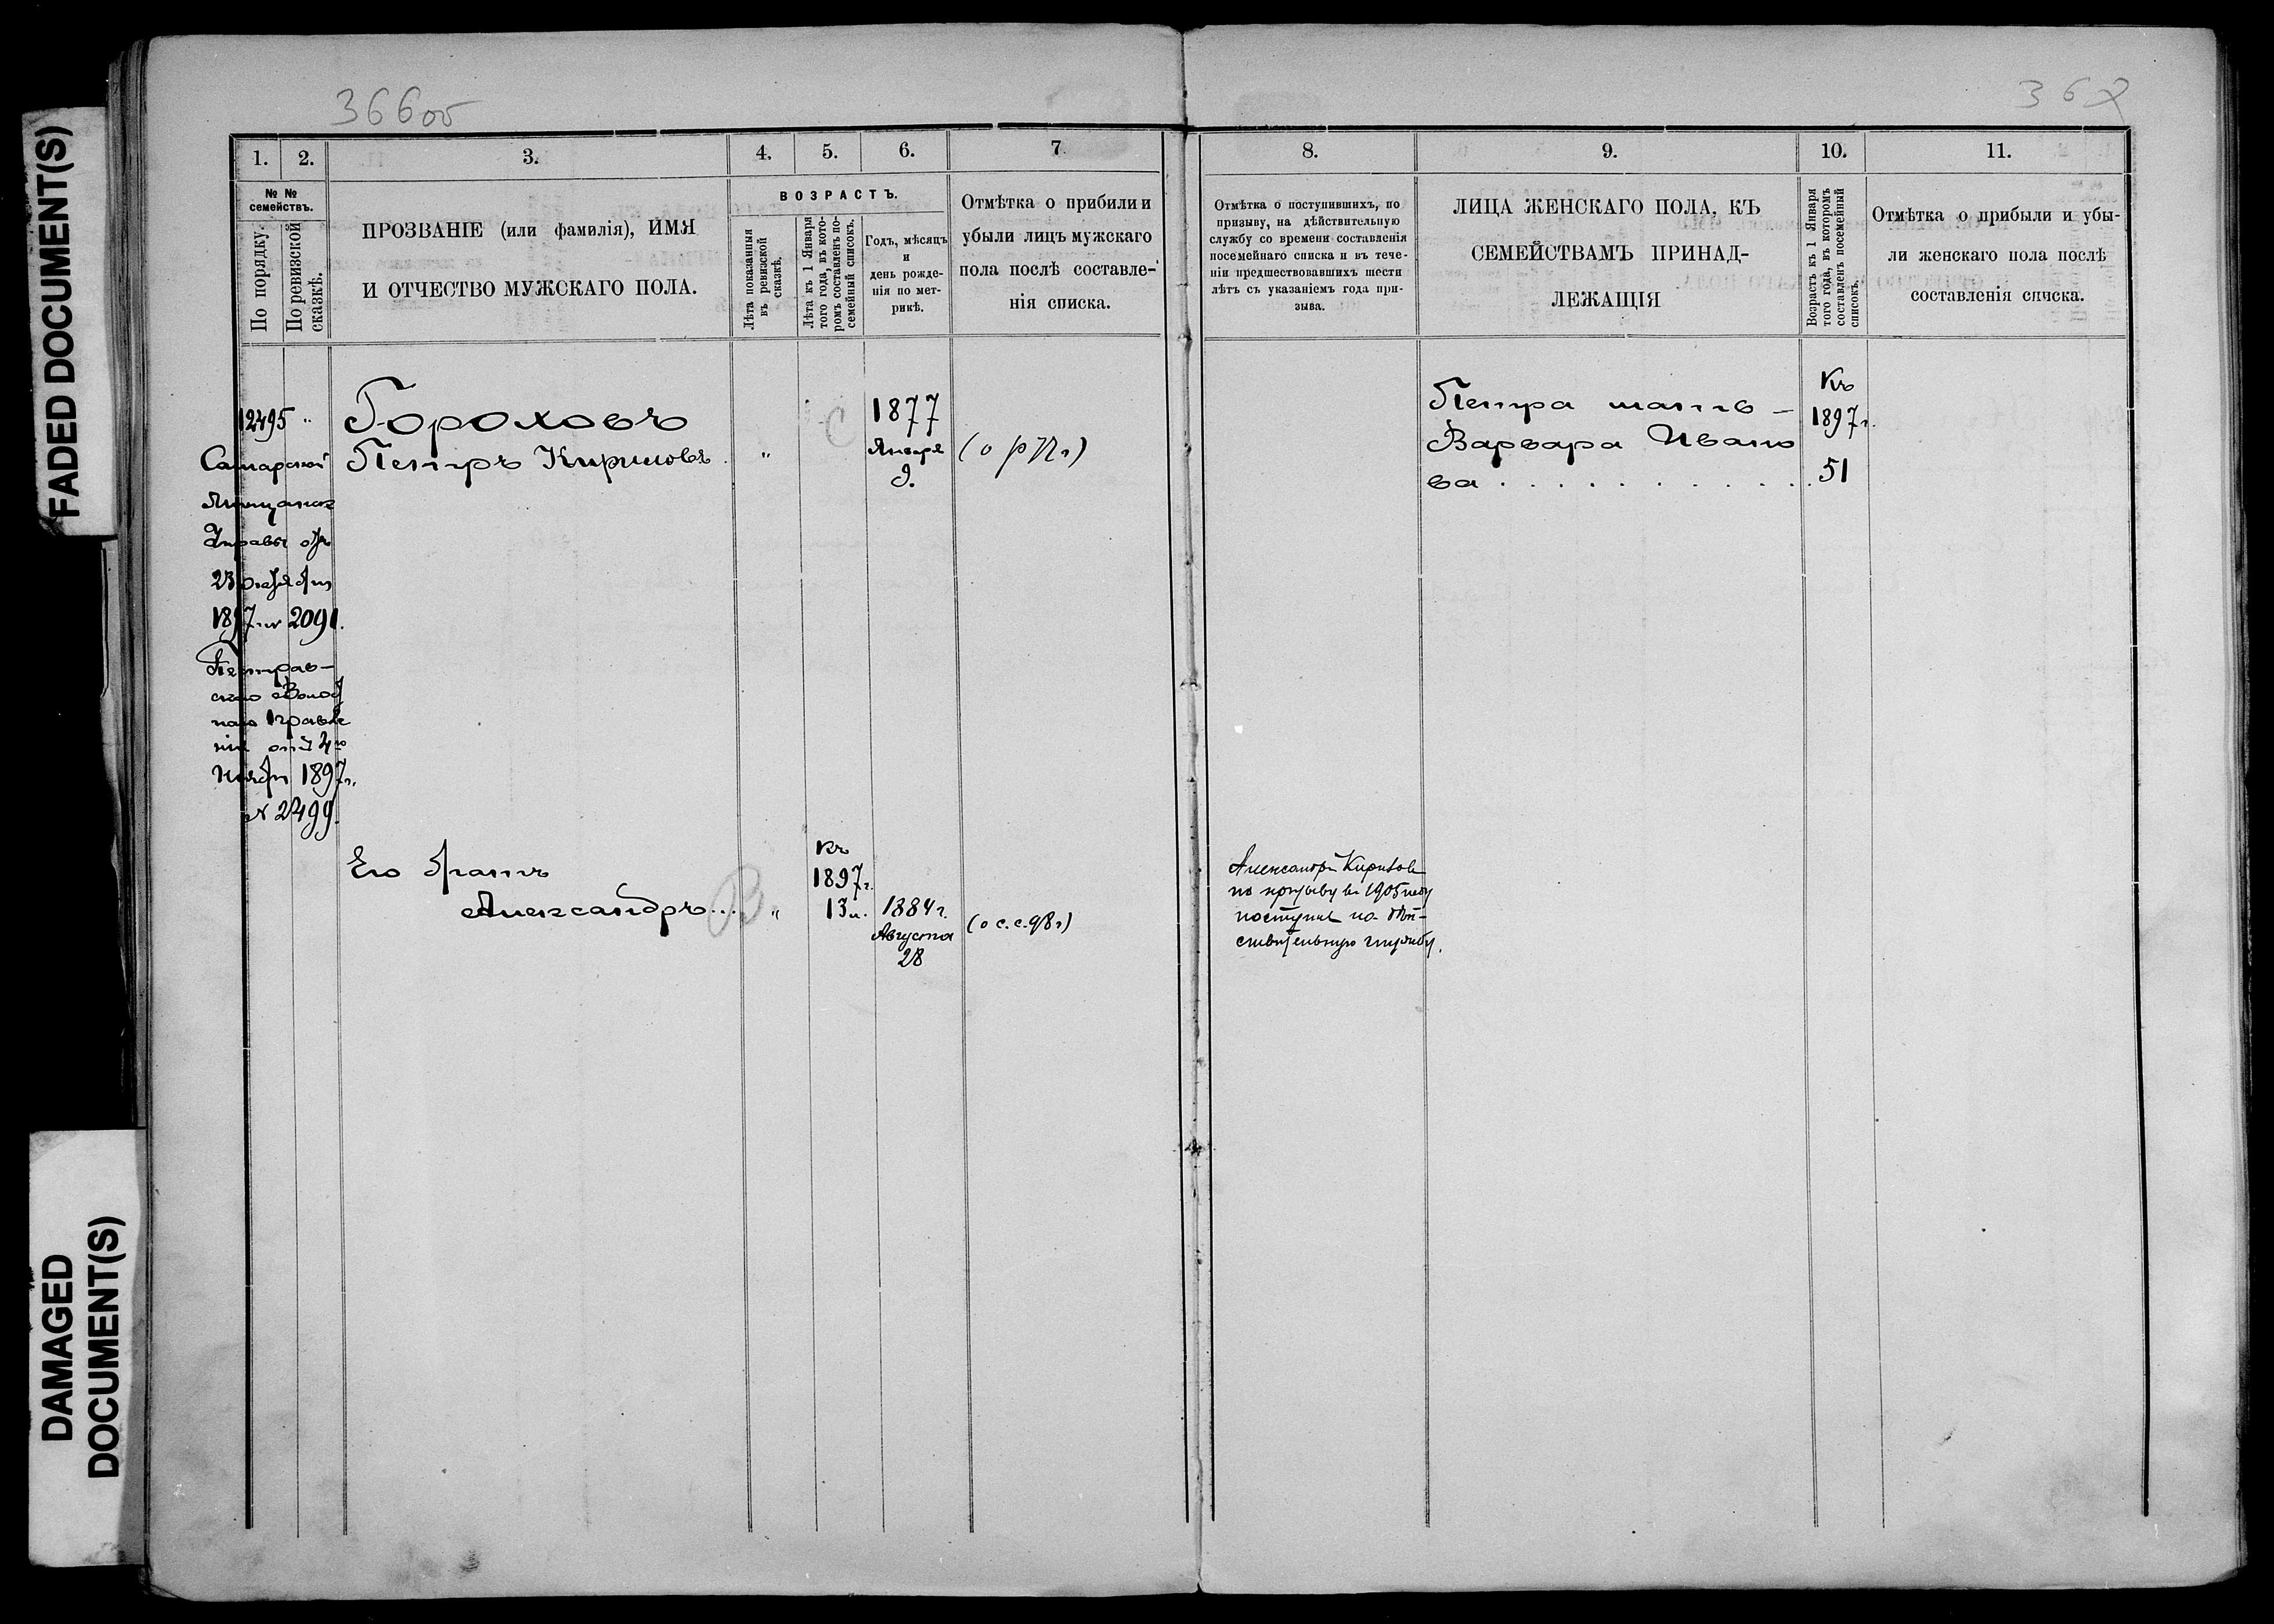 FADED DOCUMENT(S)
DAMAGED
DOCUMENT(S)
366об
1. 2. 3. 4. 5. 6. 7
№ №
семействъ.
По порядку.
По ревизской
сказкѣ.
ПРОЗВАНІЕ (или фамилія), ИМЯ
И ОТЧЕСТВО МУЖСКАГО ПОЛА.
ВОЗРАСТЪ.
Лѣта показанныя
въ ревизской
сказкѣ.
Лѣта къ 1 Января
того года, въ кото-
ромъ составленъ по-
семейный списокъ.
Годъ, мѣсяцъ
и
день рожде-
нія по мет-
рикѣ.
Отмѣтка о прибыли и
убыли лицъ мужскаго
пола послѣ составле-
нія списка.
12495 "
Самарской
Мѣщанск
Управы отъ
23 октября
1897 г № 2091.
Петров-
скаго Волост
наго Правле
нія отъ 4го
Ноября 1897 г.
№ 2499.
Гороховъ
Петръ Кириловъ "
1877
Января
9.
Его братъ
Александръ... "
Къ
1897 г.
13 л.
1884 г.
Августа
28
(о с.с. 98 г)
8. 9. 10. 11.
Отмѣтка о поступившихъ, по
призыву, на дѣйствительную
службу со времени составленія
посемейнаго списка и въ тече-
ніи предшествовавшихъ шести
лѣтъ съ указаніемъ года при-
зыва.
ЛИЦА ЖЕНСКАГО ПОЛА, КЪ
СЕМЕЙСТВАМЪ ПРИНАД-
ЛЕЖАЩІЯ
Возрастъ къ 1 Января
того года, въ которомъ
составленъ посемейный
списокъ.
Отмѣтка о прибыли и убы-
ли женскаго пола послѣ
составленія списка.
Петра мать –
Варвара Ивано
ва . . . . . . . . . . .
Къ
1897 г.
51
Александръ Кириловъ
по призыву въ 1905 году
поступилъ на дѣй-
ствительную службу.